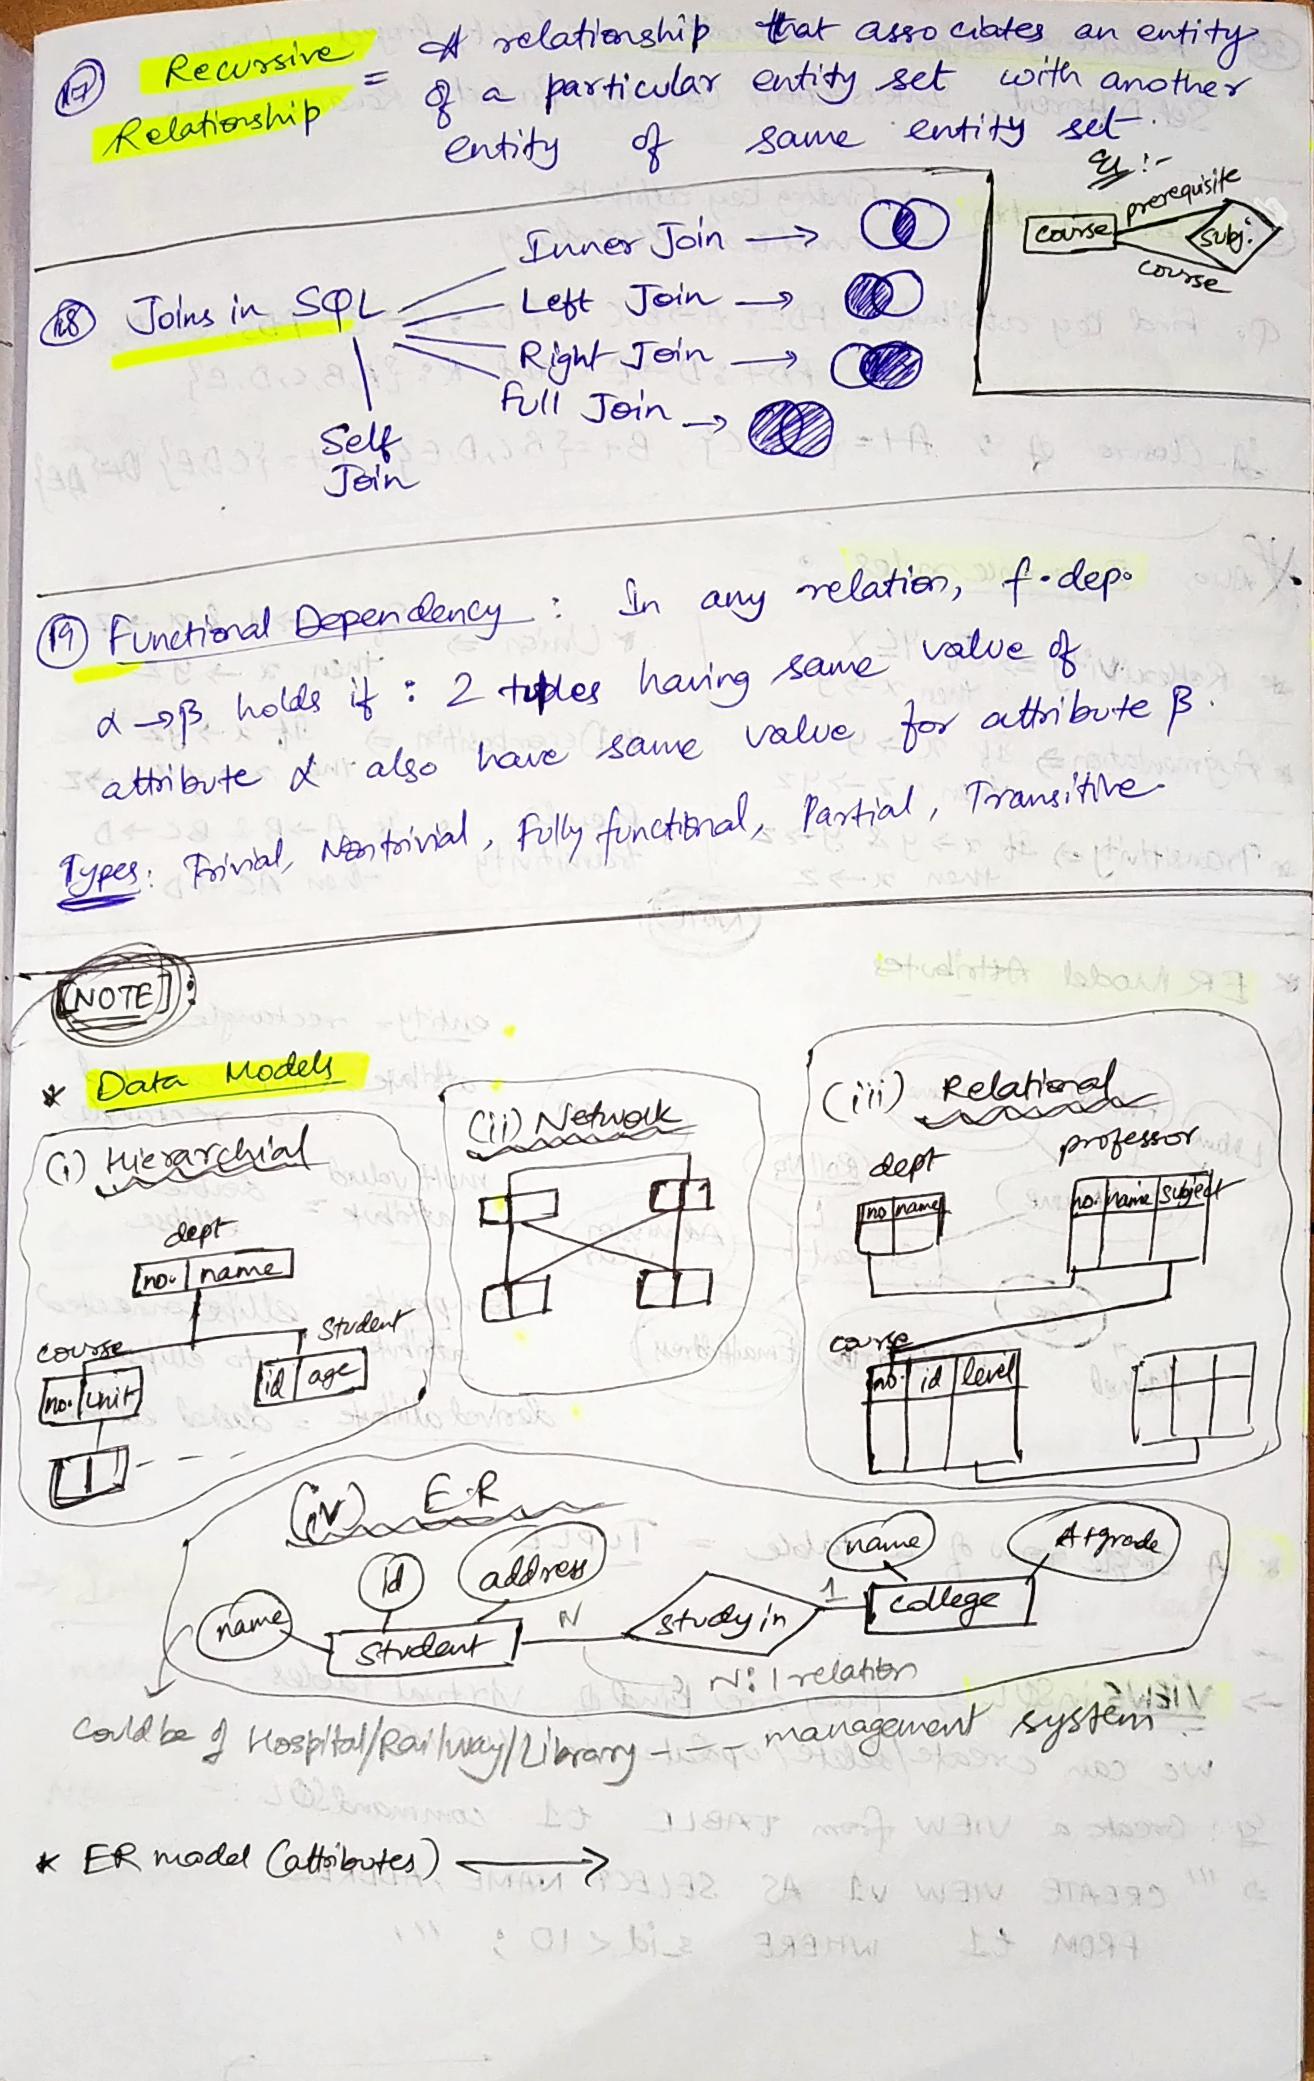 17 Recursive Relationship = A relationship that associates an entity
of a particular entity set with another
entity of same entity set.
Eg :-
course
prerequisite
course
subj.
18 Joins in SQL
Inner Join →
Left Join →
Right Join →
Full Join →
Self
Join
19 Functional Dependency : In any relation, f.dep.
α → β holds if : 2 tuples having same value of
attribute α also have same value for attribute β.
Types: Trivial, Nontrivial, Fully functional, Partial, Transitive
[NOTE] :
* Data Models
(i) Hierarchial
dept
no. name
course
no. unit
student
id age
(ii) Network
(iii) Relational
dept
no name
professor
no. name subject
course
no. id level
(iv) E.R
name
id
address
student
N
study in
1
college
name
A+grade
N:1 relation
could be of Hospital/Railway/Library --- management system
* ER model (attributes) →